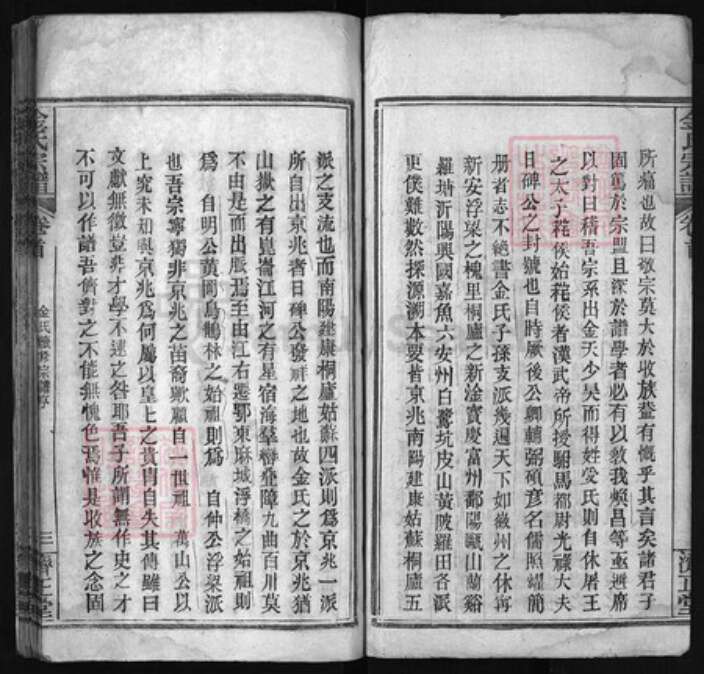 所痛也故曰敬宗莫大於收族蓋有慨乎其言矣諸君子
固篤於宗盟且深於譜學者必有以教我煥昌等亟避席
以對曰稽吾宗系出金天少昊而得姓受氏則自休屠王
之太子秺侯始秺侯者漢武帝所授駙馬都尉光祿大夫
日磾公之封號也自時厥後公卿輔弼碩彥名儒照耀簡
册者志不絕書金氏子孫支派幾遍天下如徽州之休寧
新安浮梁之槐里桐廬之新淦寶慶富州鄱陽甌山蘭谿
羅塘沂陽興國嘉魚六安州白鷺坑皮山黃陂羅田各派
更僕難數然探源溯本要皆京兆南陽建康姑蘇桐廬五
派之支流也而南陽建康桐廬姑蘇四派則爲京兆一派
所自出京兆者日磾公發祥之地也故金氏之於京兆猶
山嶽之有崑崙江河之有星宿海羣巒疊障九曲百川莫
不由是而出脈焉至由江右遷鄂東麻城浮橋之始祖則
爲 自明公黃岡烏鵲林之始祖則爲 自仲公浮梁派
也吾宗寧獨非京兆之苗裔歟顧自一世祖 萬山公以
上究未知與京兆爲何屬以皇上之貴胄自失其傳雖曰
文獻無徵豈非才學不逮之咎耶吾子所謂無作史之才
不可以作譜吾儕對之不能無愧色焉惟是收族之念固
金氏宗譜
卷首
金氏續修宗譜序
三
濟正堂